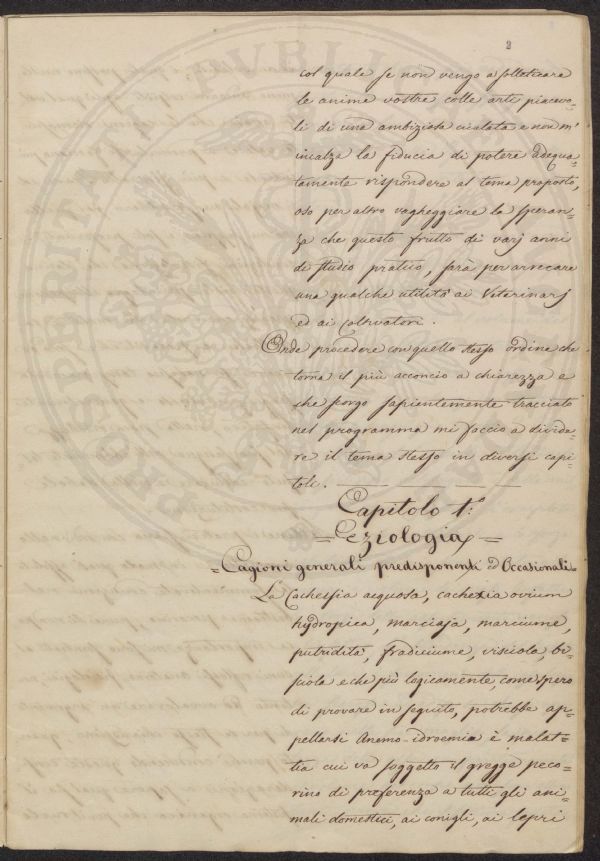 2
col quale se non vengo a solleticare
le anime vostre colle arti piacevo-
li di una ambiziosa e non m'
incalza la fiducia di potere adequa-
tamente rispondere al tema proposto,
oso per altro vagheggiare la speran-
za che questo frutto di varj anni
di studio pratico, sarà per arrecare
una qualche utilità ai Veterinarj
ed ai Coltivatori.
Onde procedere con quello stesso ordine che
torna il più acconcio a chiarezza e
che scorgo sapientemente tracciato
nel programma mi faccio a divide-
re il tema stesso in diversi capi-
toli.
Capitolo 1º:
= Eziologia =
= Cagioni generali predisponenti ed Occasionali =
La Cachessia acquosa, cachexia ovium
hydropica, marciaja, marciume,
putridità, fradiciume, visciola, bi-
sciola e che più logicamente, come spero
di provare in seguito, potrebbe ap-
pellarsi Anemo-idroemia è malat-
tia cui va soggetto il gregge peco-
rino di preferenza a tutti gli ani-
mali domestici, ai conigli, ai lepri
PVBLIC